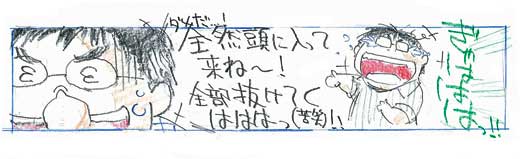 ダメだ…!
全然頭に入って
来ね〜!
全部抜けてく
はははっ(苦笑)!!
ぎゃはははっ!!